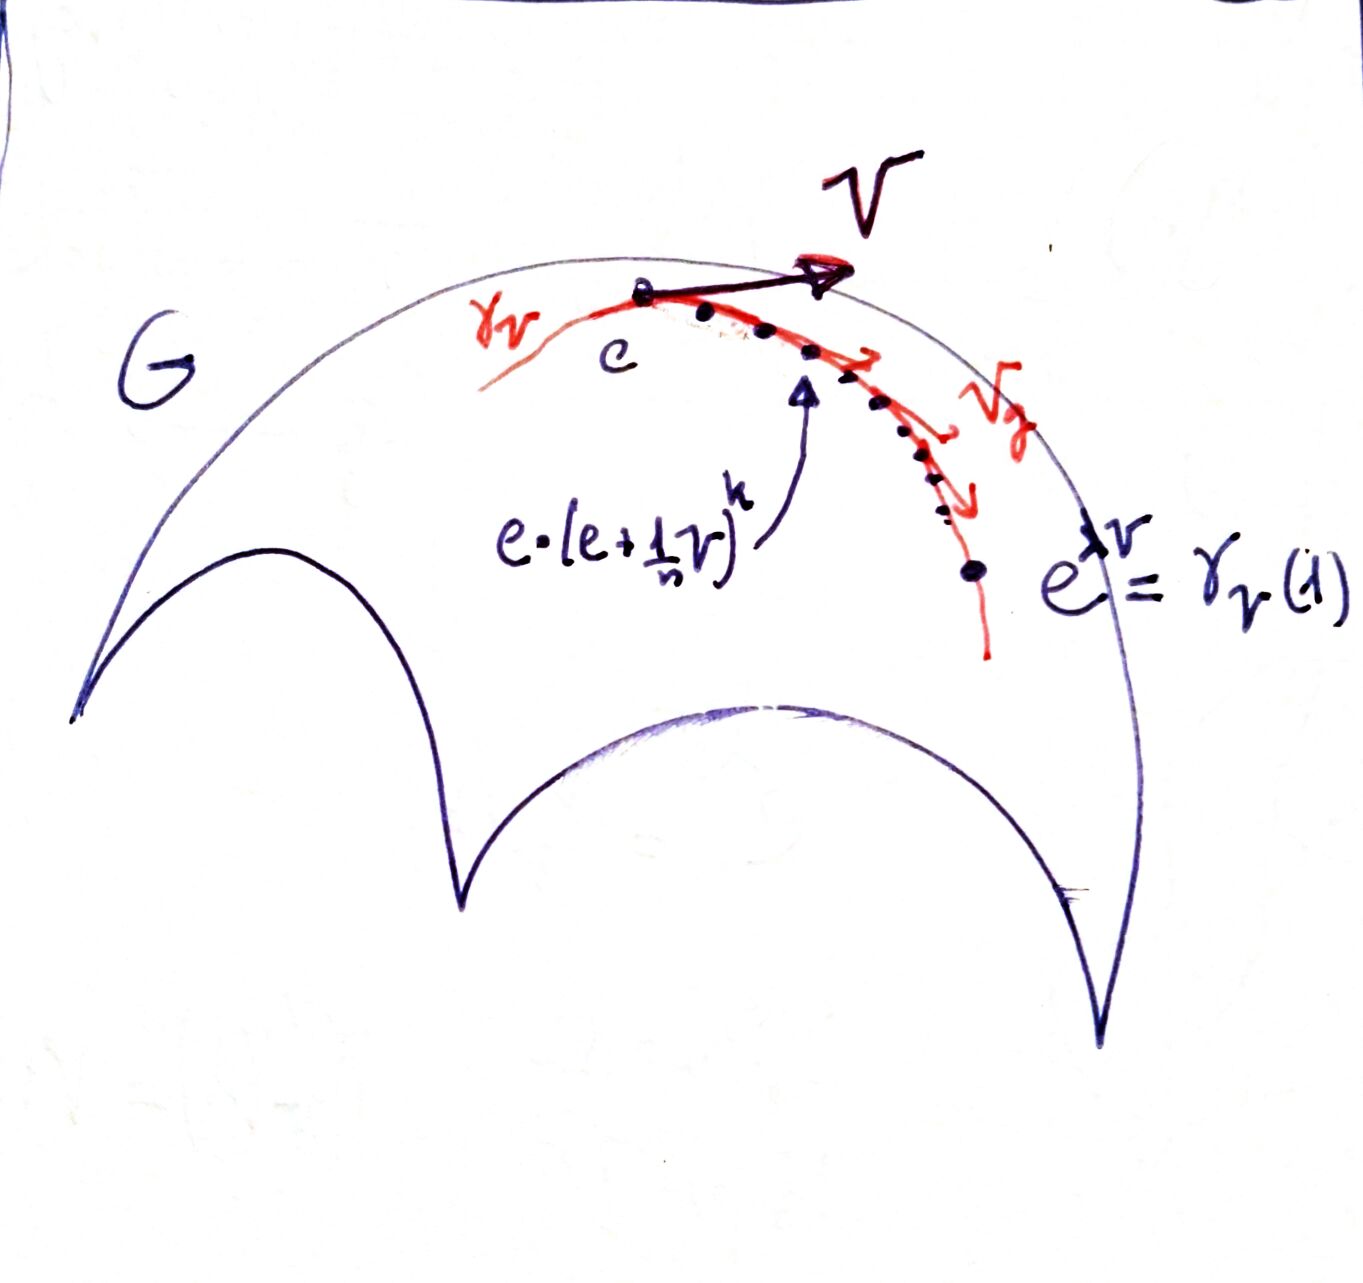 V
γ_v
G
e
V_g
e·(e+1/n V)^k
e^v = γ_v(1)